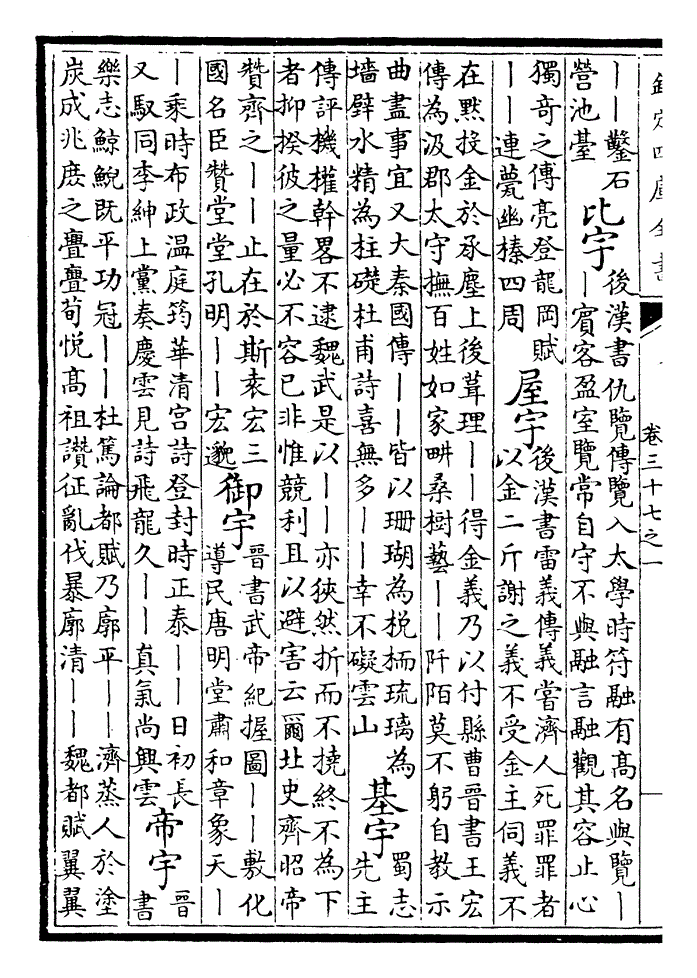 欽定四庫全書
卷三十七之一
——鑿石
營池臺
比宇
後漢書仇覽傳覽入太學時符融有髙名與覽—
—賓客盈室覽常自守不與融言融觀其容止心
獨奇之傳亮登龍岡賦
——連甍幽榛四周
屋宇
後漢書雷義傳義嘗濟人死罪罪者
以金二斤謝之義不受金主伺義不
在黙投金於承塵上後葺理——得金義乃以付縣曹晉書王宏
傳為汲郡太守撫百姓如家畊桑樹藝——阡陌莫不躬自教示
曲盡事宜又大秦國傳——皆以珊瑚為棁栭琉璃為
墻壁水精為柱礎杜甫詩喜無多——幸不礙雲山
基宇
蜀志
先主
傳評機權幹畧不逮魏武是以——亦狹然折而不撓終不為下
者抑揆彼之量必不容已非惟競利且以避害云爾北史齊昭帝
贊齊之——止在於斯袁宏三
國名臣贊堂堂孔明——宏邈
御宇
晉書武帝紀握圖——敷化
導民唐明堂肅和章象天—
—乘時布政温庭筠華清宫詩登封時正泰——日初長
又馭同李紳上黨奏慶雲見詩飛龍久——真氣尚興雲
帝宇
晉
書
樂志鯨鯢既平功冠——杜篤論都賦乃廓平——濟蒸人於塗
炭成兆庶之亹亹荀悦髙祖讚征亂伐暴廓清——魏都賦翼翼